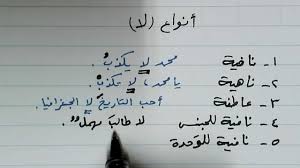 أنواع (لا)
١- نافية محمد لا يكذبُ.
٢- ناهية يا محمد، لا تكذبْ.
٣- عاطفة أحب التاريخَ لا الجغرافيا.
٤- نافية للجنس لا طالبَ مهملٌ
٥- نافية للوَحدة